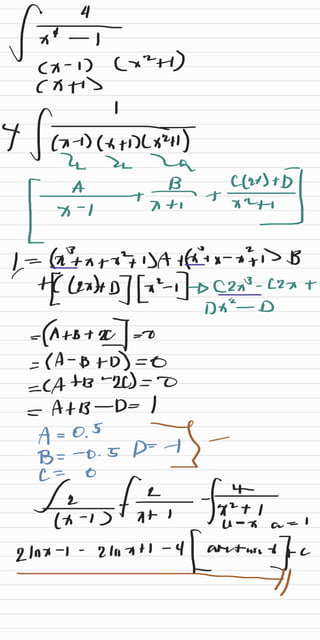 ∫ 4 / (x⁴ − 1)
(x−1) (x²+1)
(x+1)
4 ∫ 1 / ((x−1)(x+1)(x²+1))
[ A/(x−1) + B/(x+1) + (C(2x)+D)/(x²+1) ]
1 = (x³+x+x²+1)A + (x³+x−x²+1)B
+[C(2x)+D][x²−1] → C2x³ − C2x +
Dx² − D
= (A+B+2C) = 0
= (A−B+D) = 0
= (A+B−2C) = 0
= A+B−D = 1
A = 0.5
B = −0.5 D = −1
C = 0
∫ 2/(x−1) − ∫ 2/(x+1) − ∫ 4/(x²+1)
u=x a=1
2 ln x−1 − 2 ln x+1 − 4 [arctan x] + C